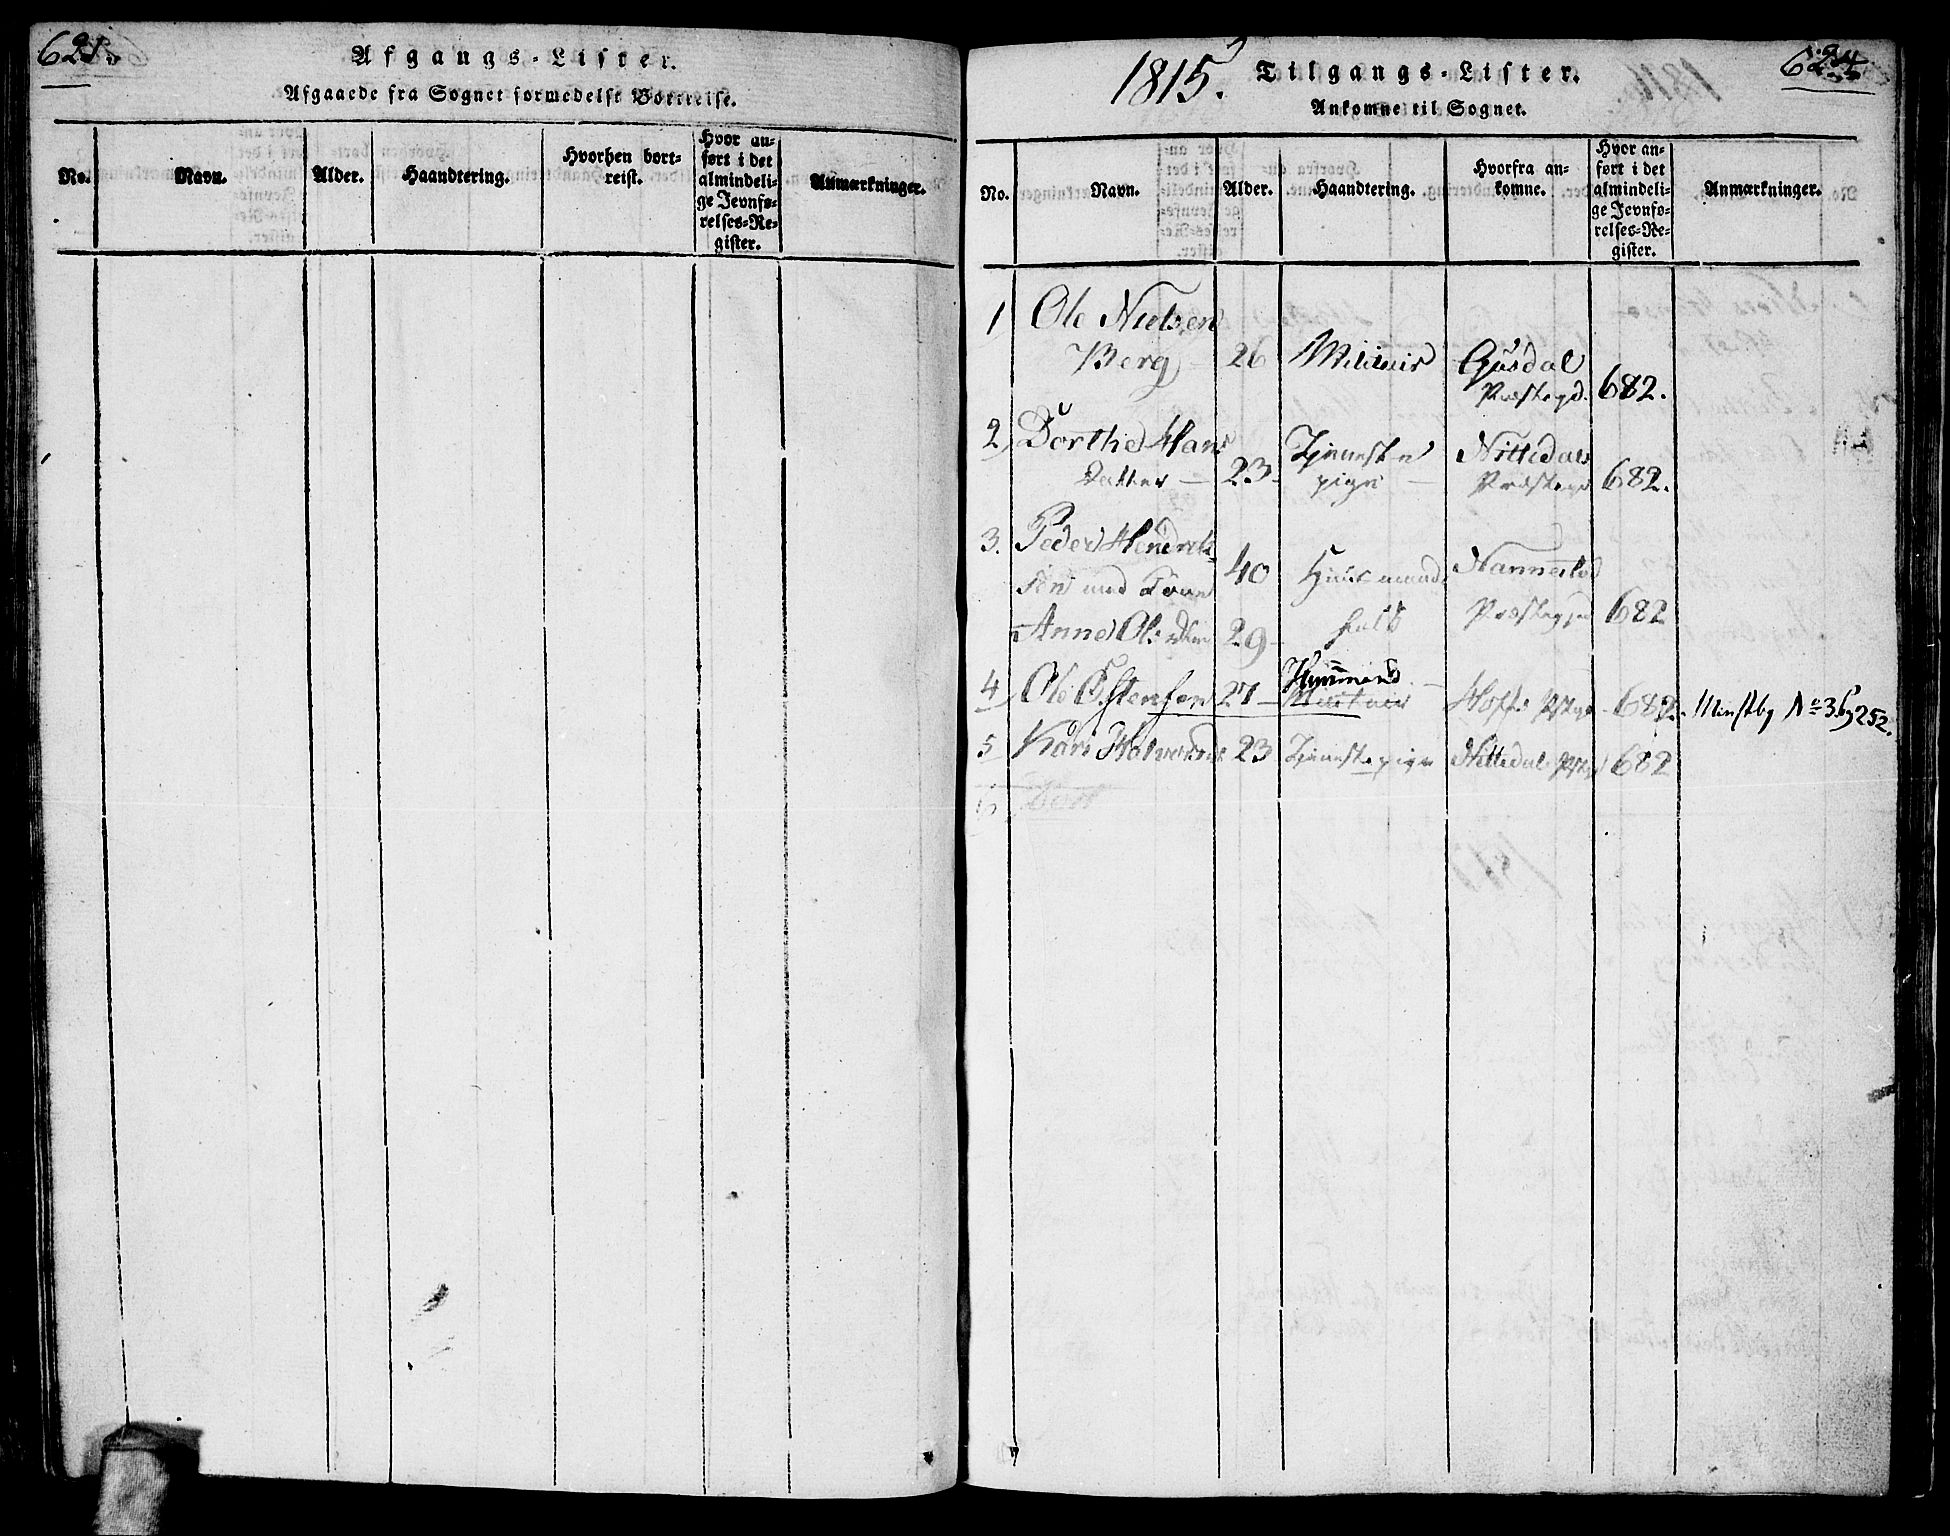 621.
Afgangs-Lister.
Afgaaede fra Sognet formedelst Bortreise.
No.
Navn.
Alder.
Haandtering.
Hvorhen bort-
reist.
Hvor an-
ført i det
almindeli-
ge Jevnfø-
relses-Re-
gister.
Anmærkninger.
1815.
Tilgangs-Lister.
Ankomne til Sognet.
No.
Navn.
Alder.
Haandtering.
Hvorfra an-
komne.
Hvor an-
ført i det
almindeli-
ge Jevnfø-
relses-Re-
gister.
Anmærkninger.
1 Ole Nielsen
Berg 26 Militair Gusdal
Præstegd. 682.
2 Dorthe Hans
Datter — 23 Tjeneste
pige — Nittedals
Præstegd 682.
3. Peder Hendrik-
sen med Kone 40 Huusmand Nannestad
Anne Ols Dtr 29 Præstegje 682
4 Ole Østensen 27 Huusmand 682. No 36
5 Kari Halvorsdr 23 Tjenestepige Nittedals Pstgd 682
6